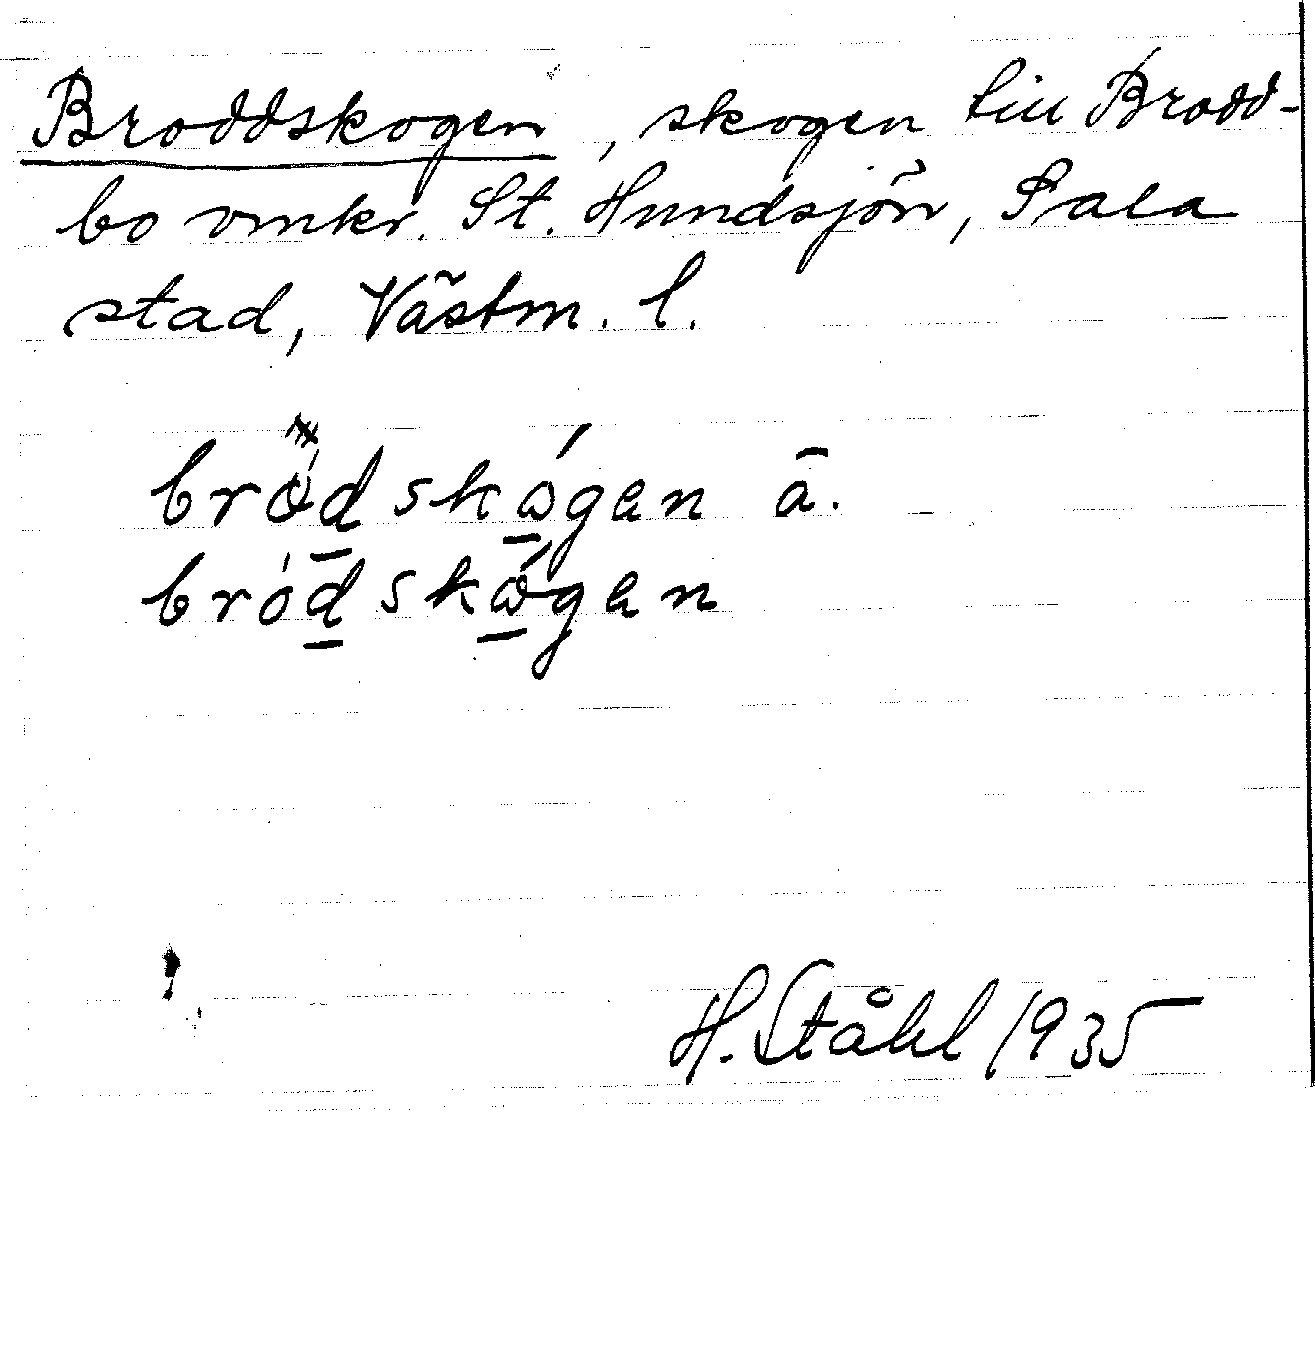 Broddskogen, skogen till Brodd-
bo omkr. St. Hundsjön, Sala
stad, Västm. l.
bródskógen ā.
bródskógen
H. Ståhl 1935